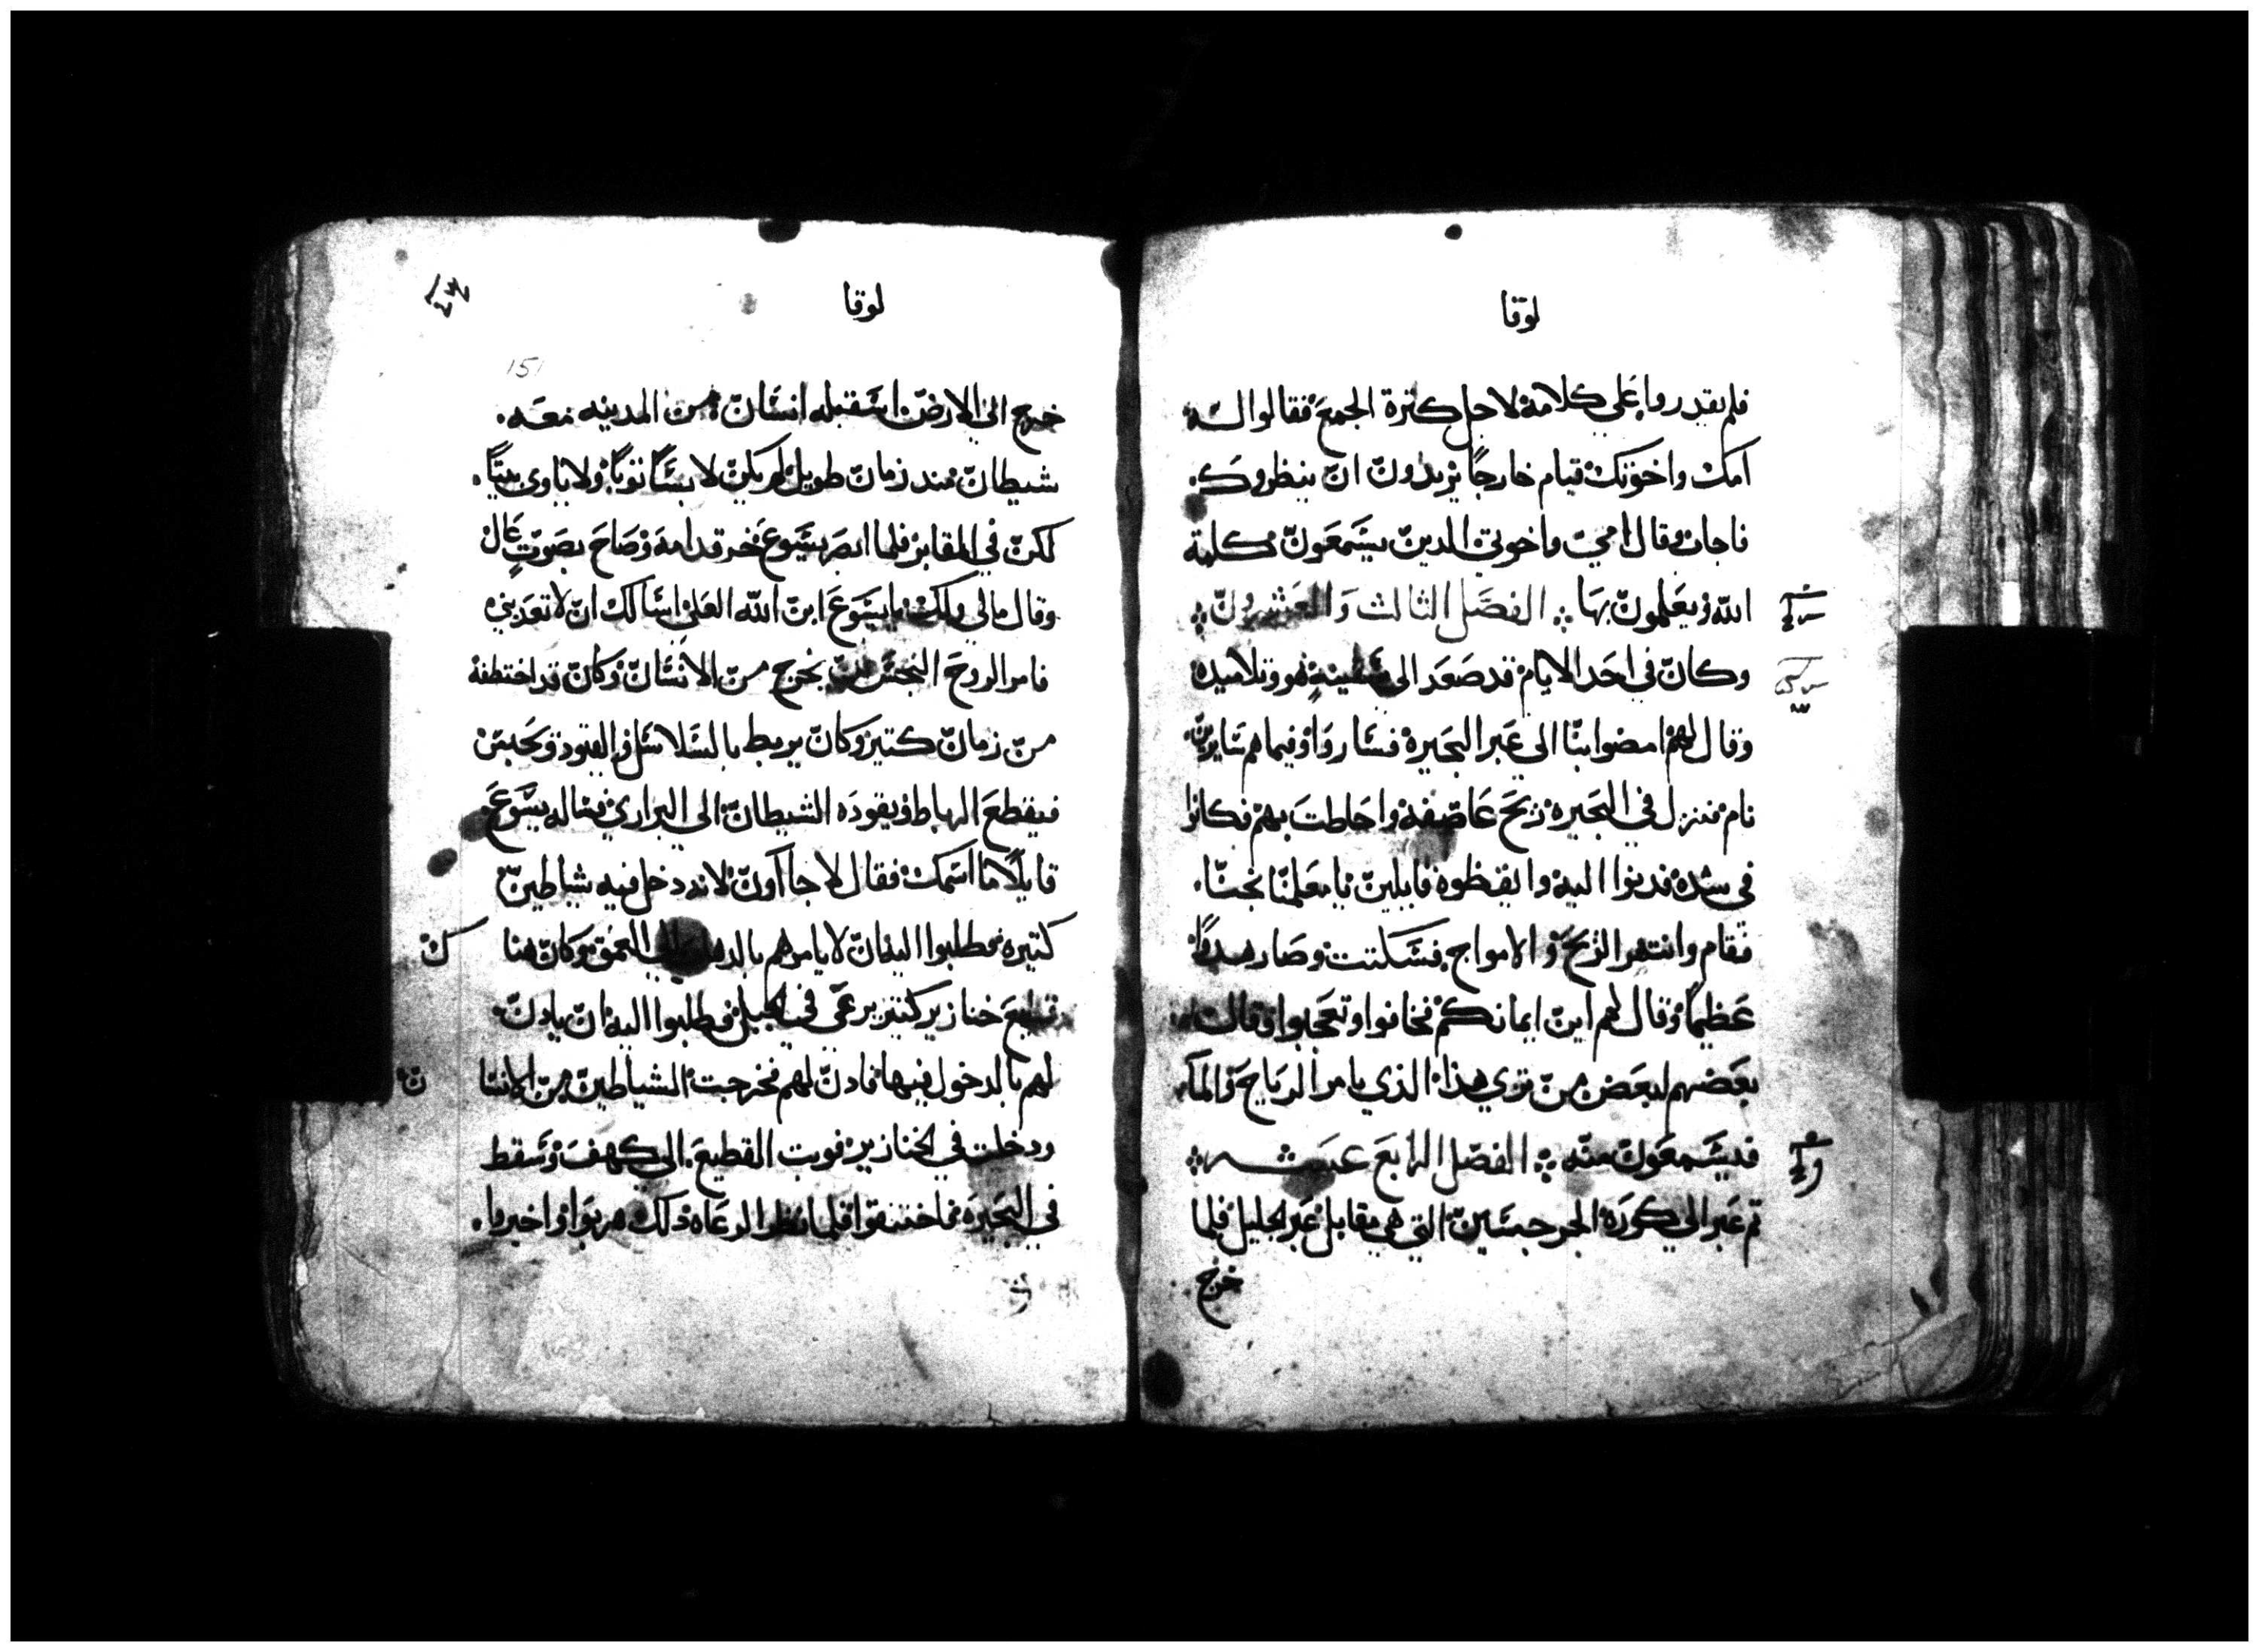 لوقا
فلم يقدروا على كلامه لاجل كترة الجمع فقالوا له
امك واخوتك قيام خارجاً يريدون ان ينظروك
فاجاب وقال امي واخوتي الدين يسمعون كلمة
الله ويعملون بها الفصل الثالث والعشرون
وكان في احد الايام قد صعد الى سفينةٍ هو وتلاميده
وقال لهم امضوا بنا الى عبر البحيره فساروا وفيما هم سايرين
نام فنزل في البحيره ريح عاصفه واحاطت بهم فكانوا
في شده فدنوا اليه وايقظوه قايلين يا معلمنا نجنا
فقام وانتهر الريح والامواج فسكنت وصار هدواً
عظيماً وقال لهم اين ايمانكم فخافوا وتعجبوا وقالت
بعضهم لبعض من تري هذا الذي يامر الرياح والمآ
فيسمعون منه الفصل الرابع عشر
تم عبر الى كورة الجرجسين التي هي مقابل عبر الجليل فلما
خرج
لوقا
151
خرج الى الارض استقبله انسان من المدينه معه
شيطان مند زمان طويل لم يكن لابساً توباً ولا ياوى بيتاً
لكن في المقابر فلما ابصر يسوع خر قدامه وصاح بصوتٍ عال
وقال مالي ولك يا يسوع ابن الله العلي اسالك ان لا تعدبني
فامر الروح النجس ان يخرج من الانسان وكان قد اختطفه
من زمان كتير وكان يربط بالسلاسل والقيود ويحبس
فيقطع الرباط ويقوده الشيطان الى البراري فساله يسوع
قايلاً ما اسمك فقال لاجاآون لانه دخل فيه شياطين
كتيره فطلبوا اليه ان لا يامرهم بالدهاب الى العمق وكان هناك
قطيع خنازير كتير يرعى في الجبل فطلبوا اليه ان يادن
لهم بالدخول فيها فادن لهم فخرجت الشياطين من الانسان
ودخلت في الخنازير فوبت القطيع الى كهف وسقط
في البحيره فاختنقوا فلما نظر الرعاه دلك هربوا واخبروا